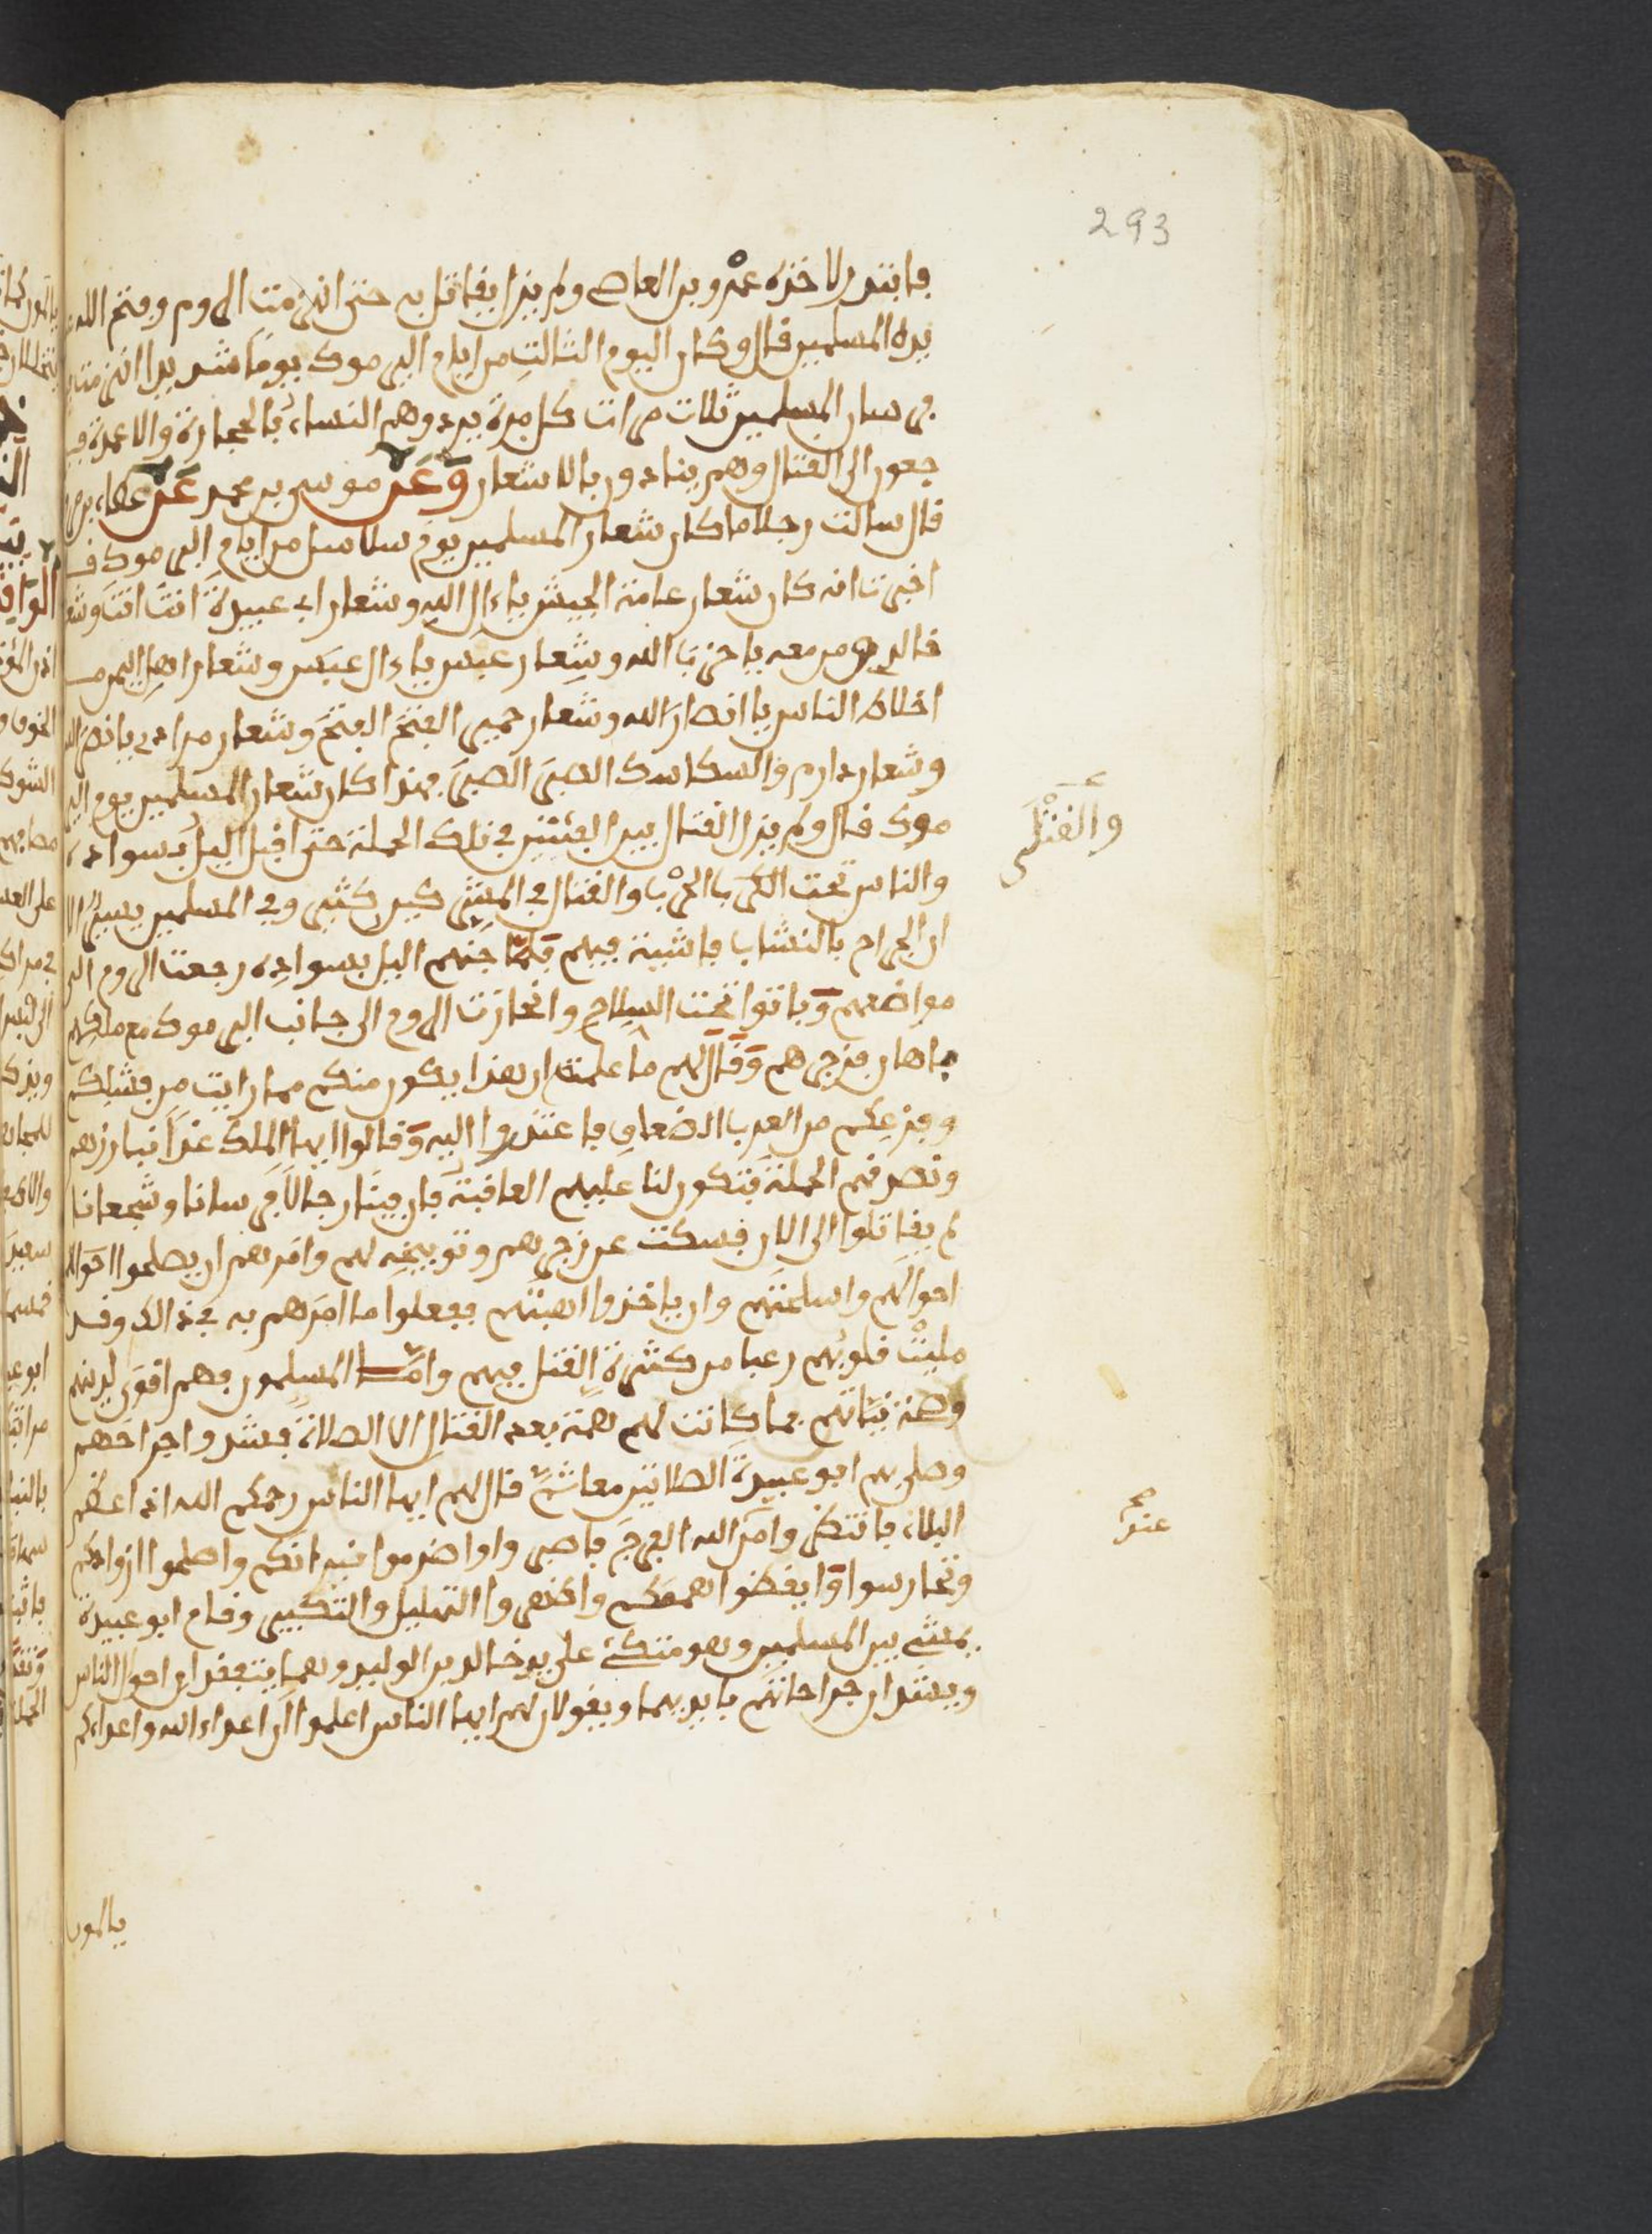 293
فابتدر لاخذه عمرو بن العاص ولم يزل يقاتل به حتى انهزمت الروم وفتح الله
يده المسلمين قال وكان اليوم الثالث من ايام اليرموك يوما شديدا انهزمت
فرسان المسلمين ثلاث مرات كل مرة يردوهم النساء بالحجارة والاعمدة فير
جعون الى القتال وهم ينادون بالاشعار وعن موسى بن محمد عن عطاء بن
قال سالت رجلا ما كان شعار المسلمين يوم سلاسل من ايام اليرموك ف
اخبرت انه كان شعار عامة الجيش ياءال الله وشعار ابي عبيدة انت انت وشعا
خالد ومن معه يا حزب الله وشعار عبس ياءال عبس وشعار اهل اليمن من
اخلاط الناس يا انصار الله وشعار حمير الفتح الفتح وشعار مراد يا نصر الله
وشعار دارم والسكاسك الصبر الصبر فهذا كان شعار المسلمين يوم الير
موك قال ولم يزل القتال بين الفئتين في تلك الحملة حتى اقبل اليل بسواده
والناس تحت الكرب الحرب والقتال في المشركين كثير وفي المسلمين يسير الا
ان الجراح بالنشاب فاشية فيهم فلما جنهم اليل بسواده رجعت الروم الى
مواضعهم وباتوا تحت السلاح وانحازت الروم الى جانب اليرموك مع ملكهم
باهان فزجرهم وقال لهم ما علمت ان هذا يكون منكم مما رايت من فشلكم
وفزعكم من العرب الضعاف فاعتذروا اليه وقالوا ايها الملك غدا نبارزهم
ونصدقهم الحملة فتكون لنا عليهم العاقبة فان فينا رجالا فرسانا وشجعانا
لم يقاتلوا الى الان فسكت عن زجرهم وتوبيخه لهم وامرهم ان يصلحوا احوال
احوالهم واسلحتهم وان ياخذوا اهبتهم ففعلوا ما امرهم به في ذالك وقد
مليت قلوبهم رعبا من كثرة القتل فيهم واما المسلمون فهم اقوى لدينهم
وصحة نياتهم فما كانت لهم همة بعد القتال الا الصلاة فشدوا جراحهم
وصلى بهم ابو عبيدة الصلاتين معا ثم قال لهم ايها الناس رحمكم الله اذا عظم
البلاء فانتظروا من الله الفرج فاصبروا واضرموا نيرانكم واصلحوا ازوادكم
وتحارسوا وايقظوا هممكم واظهروا التهليل والتكبير وقام ابو عبيدة
يمشي بين المسلمين وهو متكئ على يد خالد بن الوليد وهما يتفقدان احوال الناس
ويشدان جراحاتهم بايديهما ويقولان لهم ايها الناس اعلموا ان اعداء الله واعداءكم
والقتلى
عند
صح
يالمون